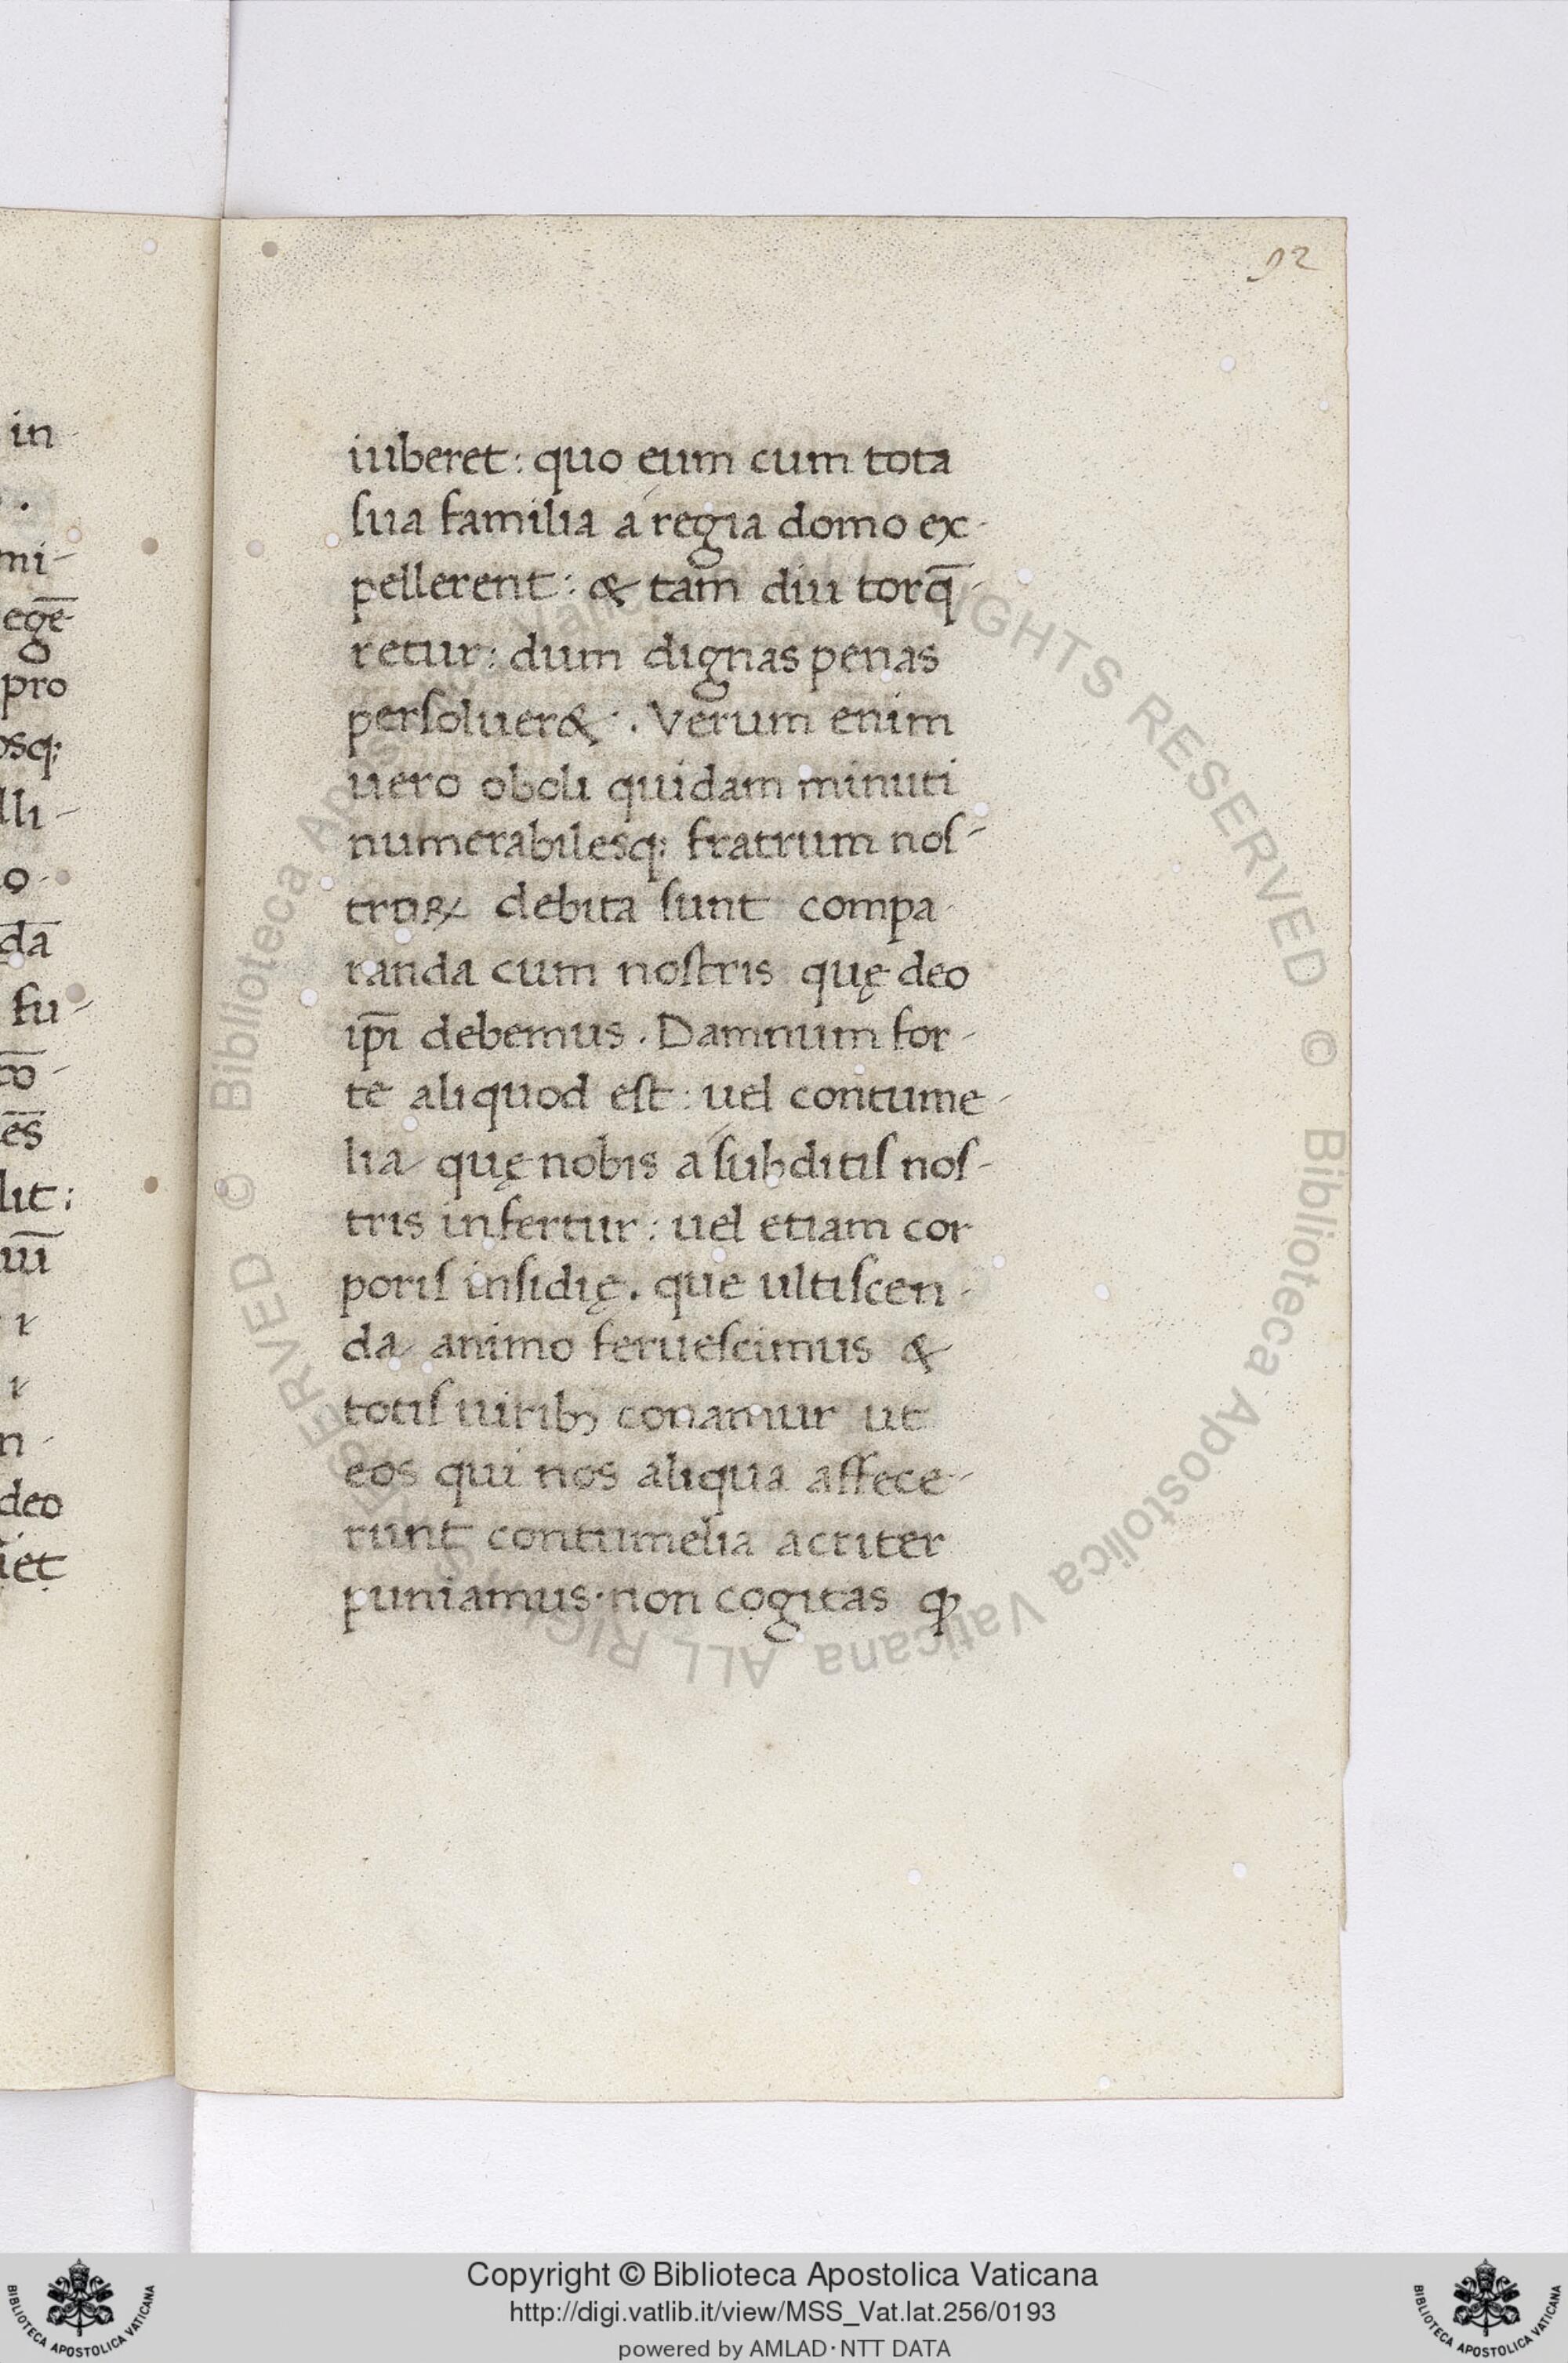 in
.
mi-
egē
pro
osq;
lli-
o-
dā
fu-
cō-
ēs
lit:
uī
r
r
n-
deo
iet
92
iuberet: quo eum cum tota
ſua familia á regia domo ex-
pellerent: & tam diu torq̄-
retur: dum dignas penas
perſoluer&:. Verum enim
uero oboli quidam minuti
numerabilesq; fratrum noſ-
troꝝ debita ſunt compa-
randa cum noſtris quę deo
ip̄i debemus. Damnum for-
te aliquod eſt: uel contume-
lia quę nobis á ſubditiſ noſ-
tris infertur: uel etiam cor
poriſ inſidię. que ultiſcen-
da animo ferueſcimus &
totiſ uirib; conamur ut
eos qui nos aliqua affece-
runt contumelia acriter
puniamus. non cogitas ꝙ
© Biblioteca Apostolica Vaticana ALL RIGHTS RESERVED
© Biblioteca Apostolica Vaticana ALL RIGHTS RESERVED
BIBLIOTECA APOSTOLICA VATICANA
Copyright © Biblioteca Apostolica Vaticana
http://digi.vatlib.it/view/MSS_Vat.lat.256/0193
powered by AMLAD·NTT DATA
BIBLIOTECA APOSTOLICA VATICANA